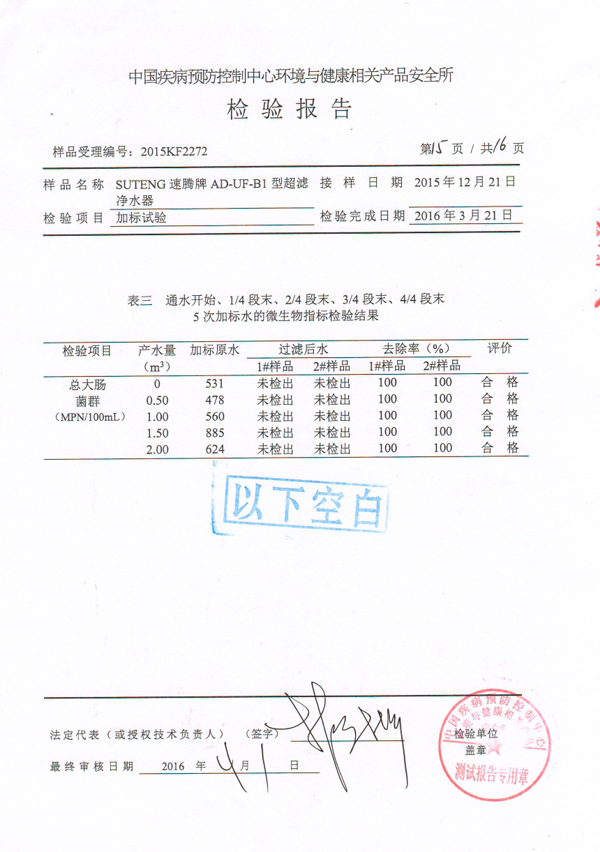 中国疾病预防控制中心环境与健康相关产品安全所
检验报告
样品受理编号：2015KF2272 第15页 / 共16页
样品名称 SUTENG 速腾牌 AD-UF-B1 型超滤净水器 接样日期 2015年12月21日
检验项目 加标试验 检验完成日期 2016年3月21日
表三 通水开始、1/4 段末、2/4 段末、3/4 段末、4/4 段末
5 次加标水的微生物指标检验结果
检验项目 产水量（m³） 加标原水 过滤后水 去除率（%） 评价
1#样品 2#样品 1#样品 2#样品
总大肠 0 531 未检出 未检出 100 100 合格
菌群 0.50 478 未检出 未检出 100 100 合格
（MPN/100mL） 1.00 560 未检出 未检出 100 100 合格
1.50 885 未检出 未检出 100 100 合格
2.00 624 未检出 未检出 100 100 合格
以下空白
法定代表（或授权技术负责人） （签字）
检验单位
盖章
最终审核日期 2016 年 4 月 1 日
中国疾病预防控制中心
测试报告专用章